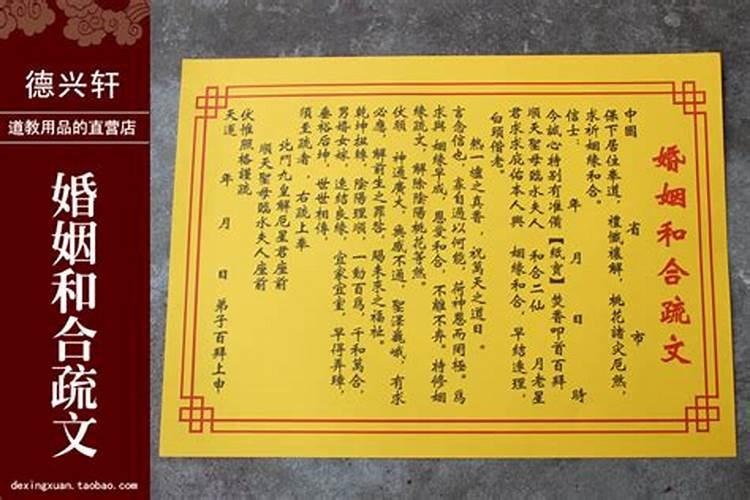 德兴轩
道教用品的直营店
婚姻和合疏文
dexingxuan.taobao.com
婚姻和合疏文
中國 省 市
保下居住奉道，禮懺禳解，桃花諸灾厄煞，
求祈姻緣和合。
信士： 年 月 日 時
今誠心特别有准備【紙寳】焚香叩首百拜
順天聖母臨水夫人 和合二仙 月老星
君求求庇佑本人與 姻緣和合，早結連理，
白頭偕老。
熱一爐之真香，祝萬天之道日。
言念信也，拿自過以何能，荷神恩而罔極。爲
求與 姻緣早成，恩爱和合，不離不弃。特修姻
緣疏文，解除陰陽桃花等煞。
伏願 神通廣大，無感不通，聖澤巍峨，有求
必應，解前生之罪咎，賜未來之福祉。
乾坤扭轉，陰陽理順，一動百爲，千和萬合，
男婚女嫁，速結良緣，宜家宜室，早得弄璋，
垂裕后坤，世世相傳，
須至疏者，右疏上奉
北斗九皇解厄星君座前
順天聖母臨水夫人座前
伏惟照格謹疏
天運 年 月 日 弟子百拜上申